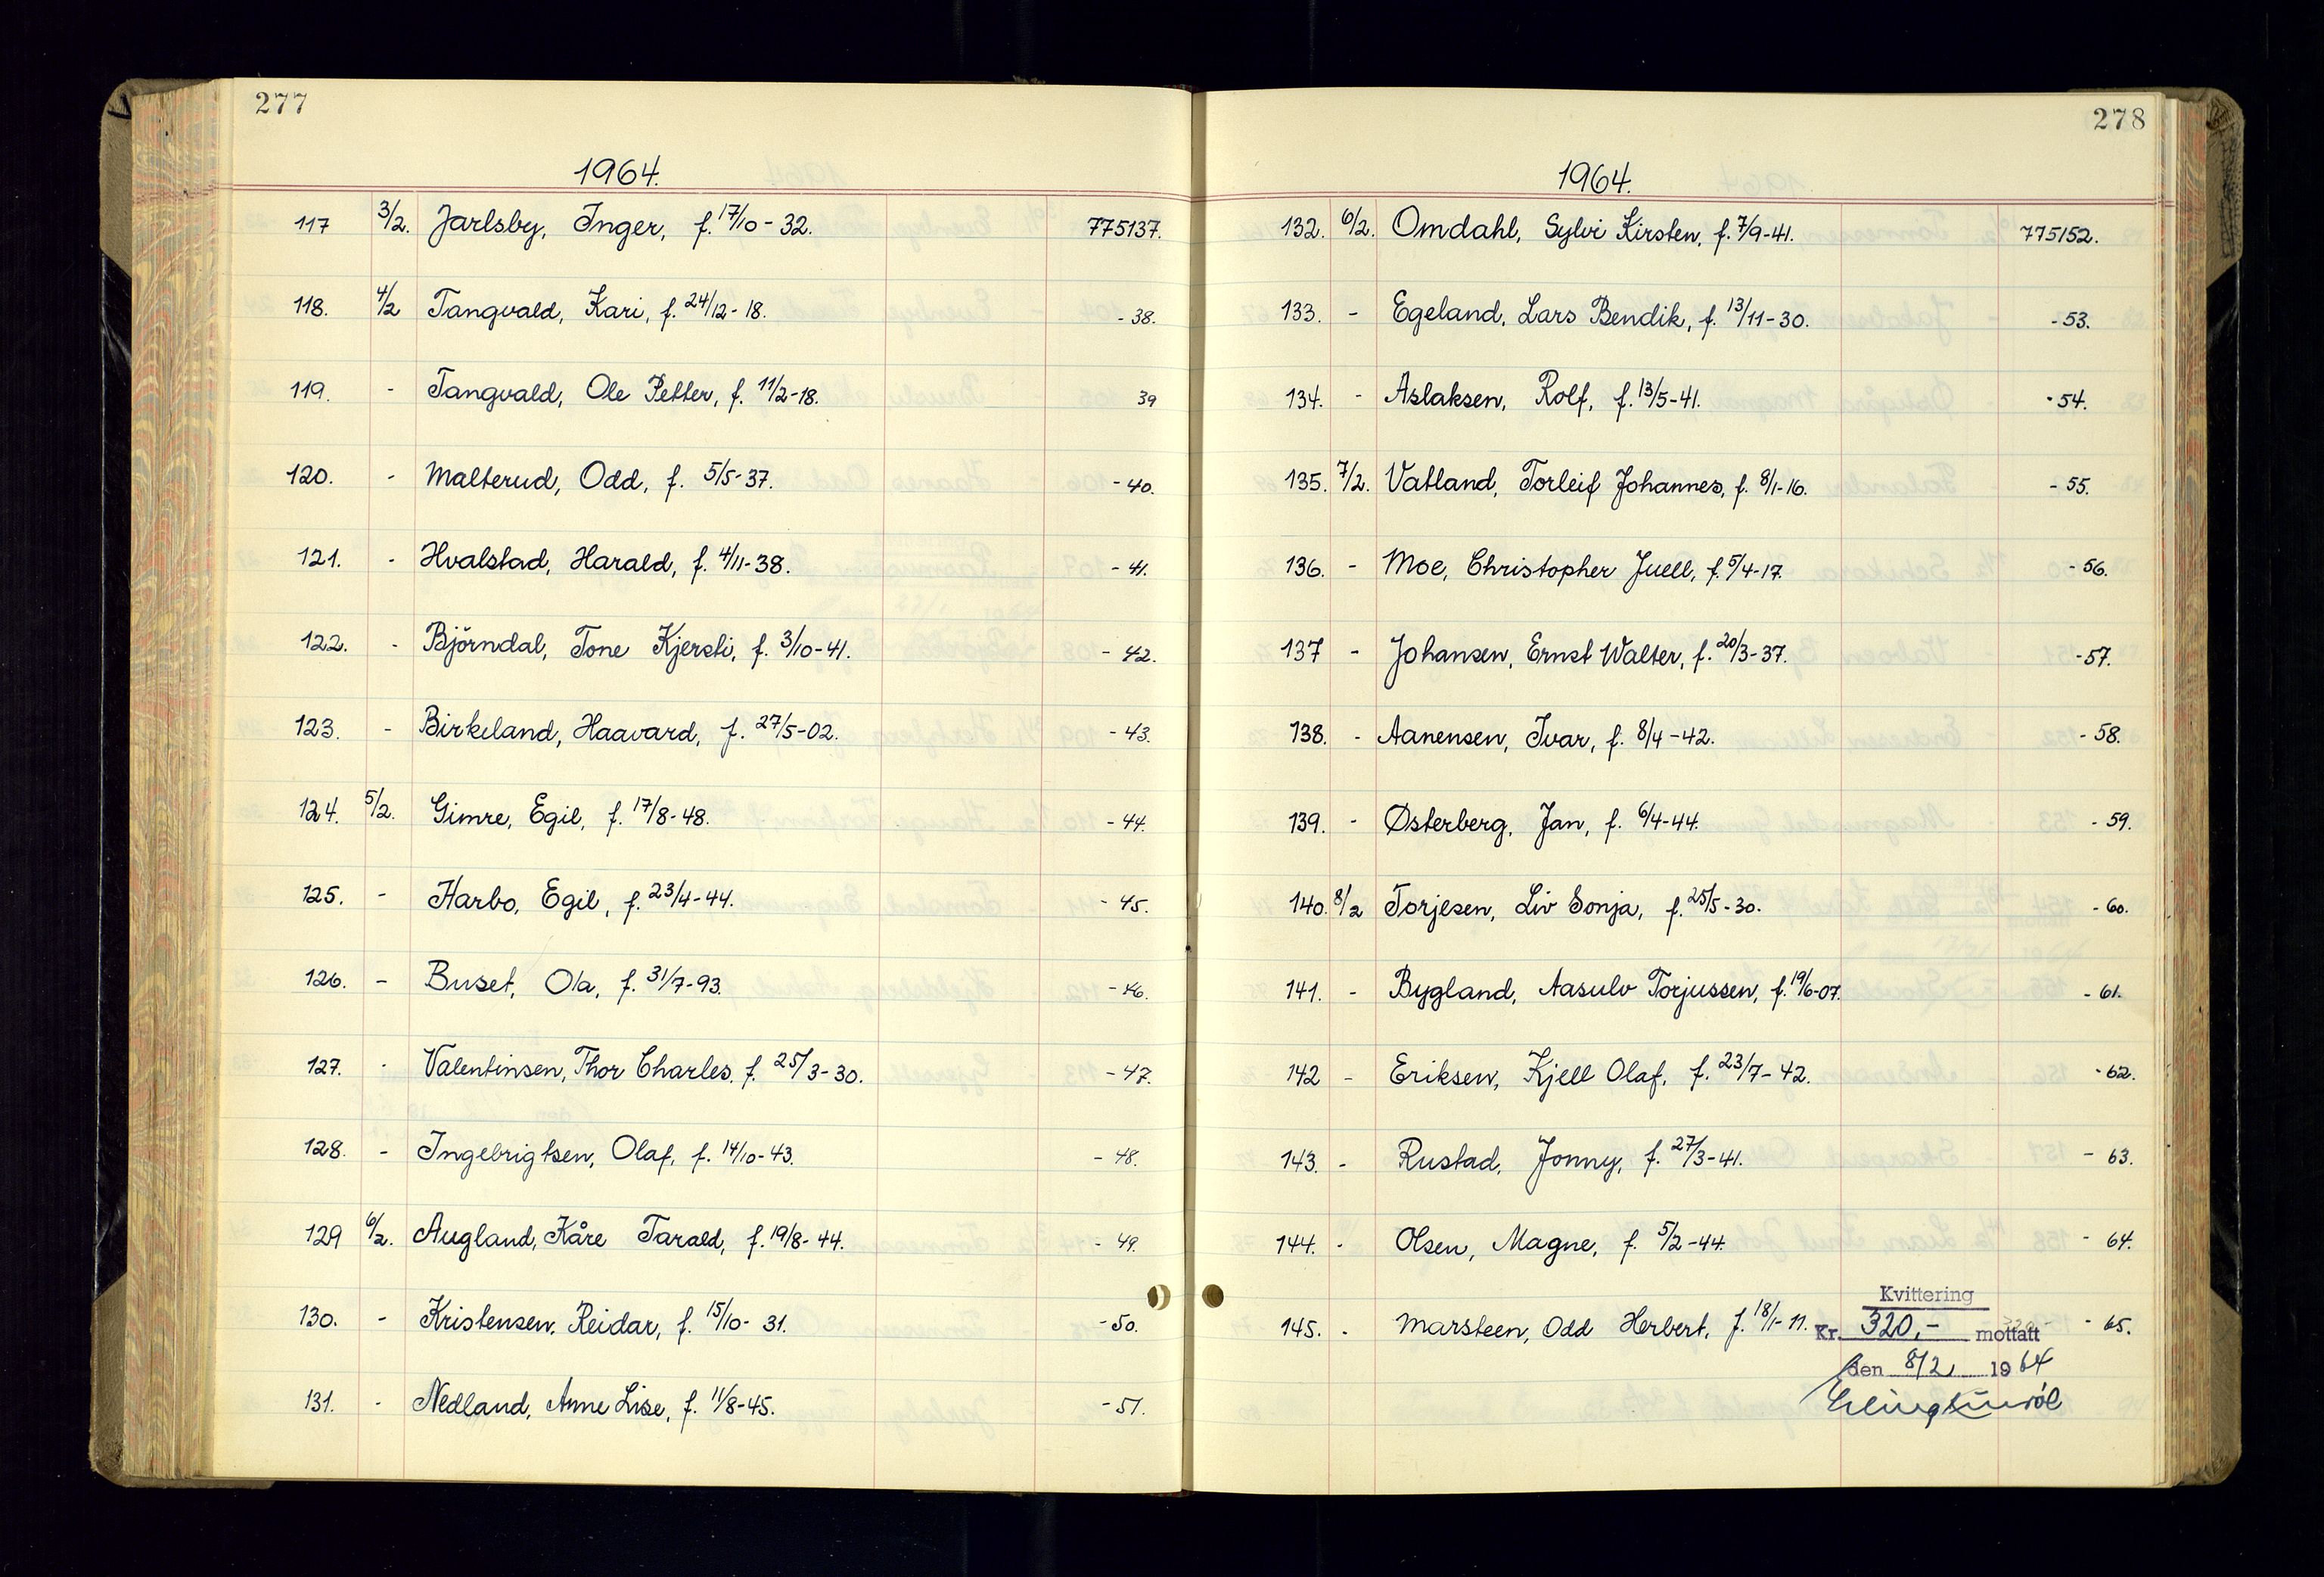 277
1964.
117 3/2. Jarlsby, Inger, f. 17/10-32. 775137.
118. 4/2 Tangvald, Kari, f. 24/12-18. -38.
119. - Tangvald, Ole Petter, f. 11/2-18. 39
120. - Malterud, Odd, f. 5/5-37. -40.
121. - Hvalstad, Harald, f. 4/11-38. -41.
122. - Björndal, Tone Kjersti, f. 3/10-41. -42.
123. - Birkeland, Haavard, f. 27/5-02. -43.
124. 5/2. Gimre, Egil, f. 17/8-48. -44.
125. - Harbo, Egil, f. 23/4-44. -45.
126. - Buset, Ola, f. 31/7-93. -46.
127. - Valentinsen, Thor Charles. f. 25/3-30. -47.
128. - Ingebrigtsen, Olaf, f. 14/10-43. -48.
129 6/2. Augland, Kåre Tarald, f. 19/8-44. -49.
130. - Kristensen, Reidar, f. 15/10-31. -50.
131. - Nedland, Anne Lise, f. 11/8-45. -51.
278
1964.
132. 6/2. Omdahl, Sylvi Kirsten, f. 7/9-41. 775152.
133. - Egeland, Lars Bendik, f. 13/11-30. -53.
134. - Aslaksen, Rolf, f. 13/5-41. -54.
135. 7/2. Vatland, Torleif Johannes, f. 8/1-16. -55.
136. - Moe, Christopher Juell, f. 5/4-17. -56.
137 - Johansen, Ernst Walter, f. 20/3-37. -57.
138. - Aanensen, Ivar, f. 8/4-42. -58.
139. - Østerberg, Jan, f. 6/4-44. -59.
140. 8/2 Torjesen, Liv Sonja, f. 25/5-30. -60.
141. - Bygland, Aasulv Torjussen, f. 19/6-07. -61.
142 - Eriksen, Kjell Olaf, f. 23/7-42. -62.
143. - Rustad, Jonny, f. 27/3-41. -63.
144. - Olsen, Magne, f. 5/2-44. -64.
Kvittering
145. - Marsteen, Odd Herbert, f. 18/1-11. -65.
Kr. 320,- mottatt
den 8/2 1964